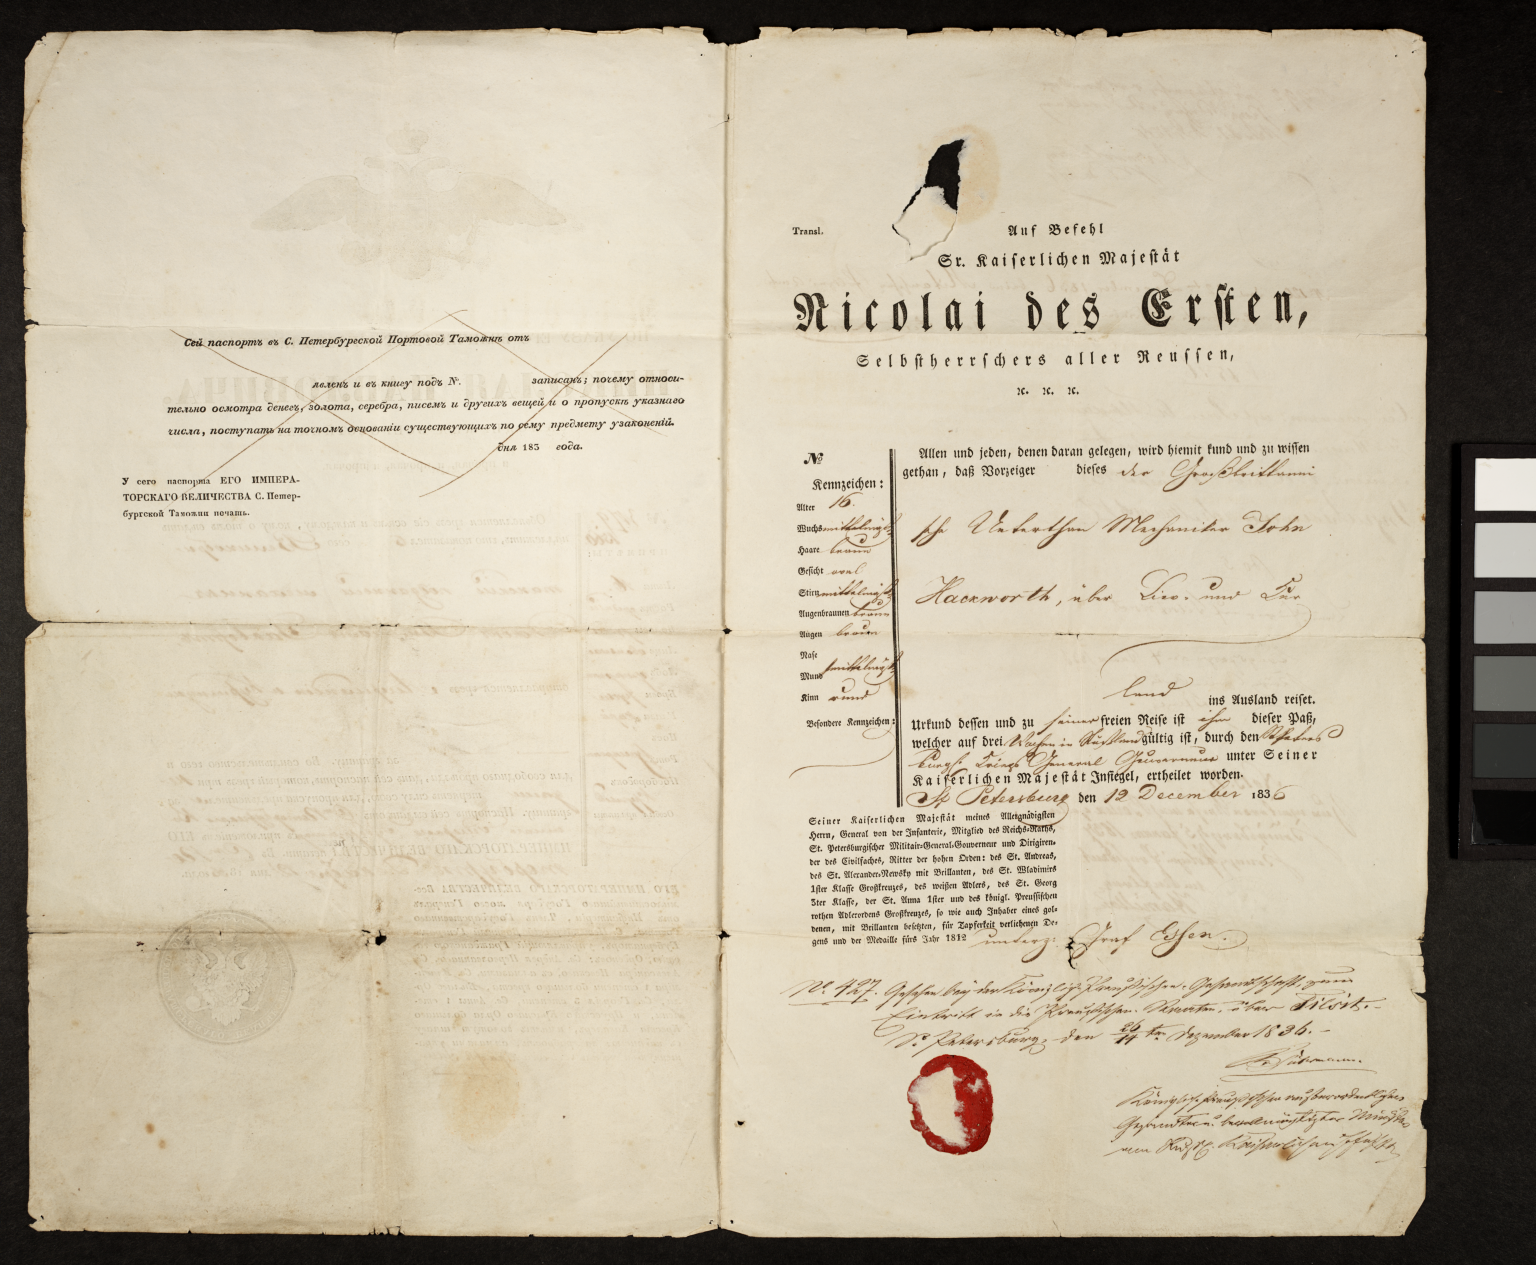 Сей паспортъ въ С. Петербургской Портовой Таможнѣ отъ
явленъ и въ книгу подъ №. записанъ; почему относи-
тельно осмотра денегъ, золота, серебра, писемъ и другихъ вещей и о пропускѣ указнаго
числа, поступать на точномъ основаніи существующихъ по сему предмету узаконеній.
дня 183 года.
У сего паспорта ЕГО ИМПЕРА-
ТОРСКАГО ВЕЛИЧЕСТВА С. Петер-
бургской Таможни печать.
Transl.
Auf Befehl
Sr. Kaiserlichen Majestät
Nicolai des Ersten,
Selbstherrschers aller Reussen,
ꝛc. ꝛc. ꝛc.
№
Kennzeichen:
Alter 16.
Wuchs mittelmäß.
Haare braun
Gesicht oval
Stirn mittelmäß.
Augenbraunen braun
Augen braun
Nase
Mund mittelmäß.
Kinn rund
Besondere Kennzeichen:
Allen und jeden, denen daran gelegen, wird hiemit kund und zu wissen
gethan, daß Vorzeiger dieses der Großbrittanni
sche Unterthan Mechaniker John
Hackworth, über Liev- und Kur
land ins Ausland reiset.
Urkund dessen und zu seiner freien Reise ist ihm dieser Paß,
welcher auf drei Wochen in Rußland gültig ist, durch den St Peters
burgs. Kriegs General Gouverneur unter Seiner
Kaiserlichen Majestät Insiegel, ertheilet worden.
St Petersburg den 12 December 1836
Seiner Kaiserlichen Majestät meines Allergnädigsten
Herrn, General von der Infanterie, Mitglied des Reichs-Raths,
St. Petersburgischer Militair-General-Gouverneur und Dirigiren-
der des Civilfaches, Ritter der hohen Orden: des St. Andreas,
des St. Alexander-Newsky mit Brillanten, des St. Wladimirs
1ster Klasse Großkreuzes, des weißen Adlers, des St. Georg
3ter Klasse, der St. Anna 1ster und des königl. Preussischen
rothen Adlerordens Großkreuzes, so wie auch Inhaber eines gol-
denen, mit Brillanten besetzten, für Tapferkeit verliehenen De-
gens und der Medaille fürs Jahr 1812 unterz: Graf Essen.
No. 427. Gesehen bey der Königlich Preußischen Gesandtschaft zum
Eintritt in die Preußischen Staaten über Tilsit.
St. Petersburg, den 26/14 ten Dezember 1836.
Königlich Preußischer außerordentlicher
Gesandter u. bevollmächtigter Minister
am Russ. Kaiserlichen Hofe